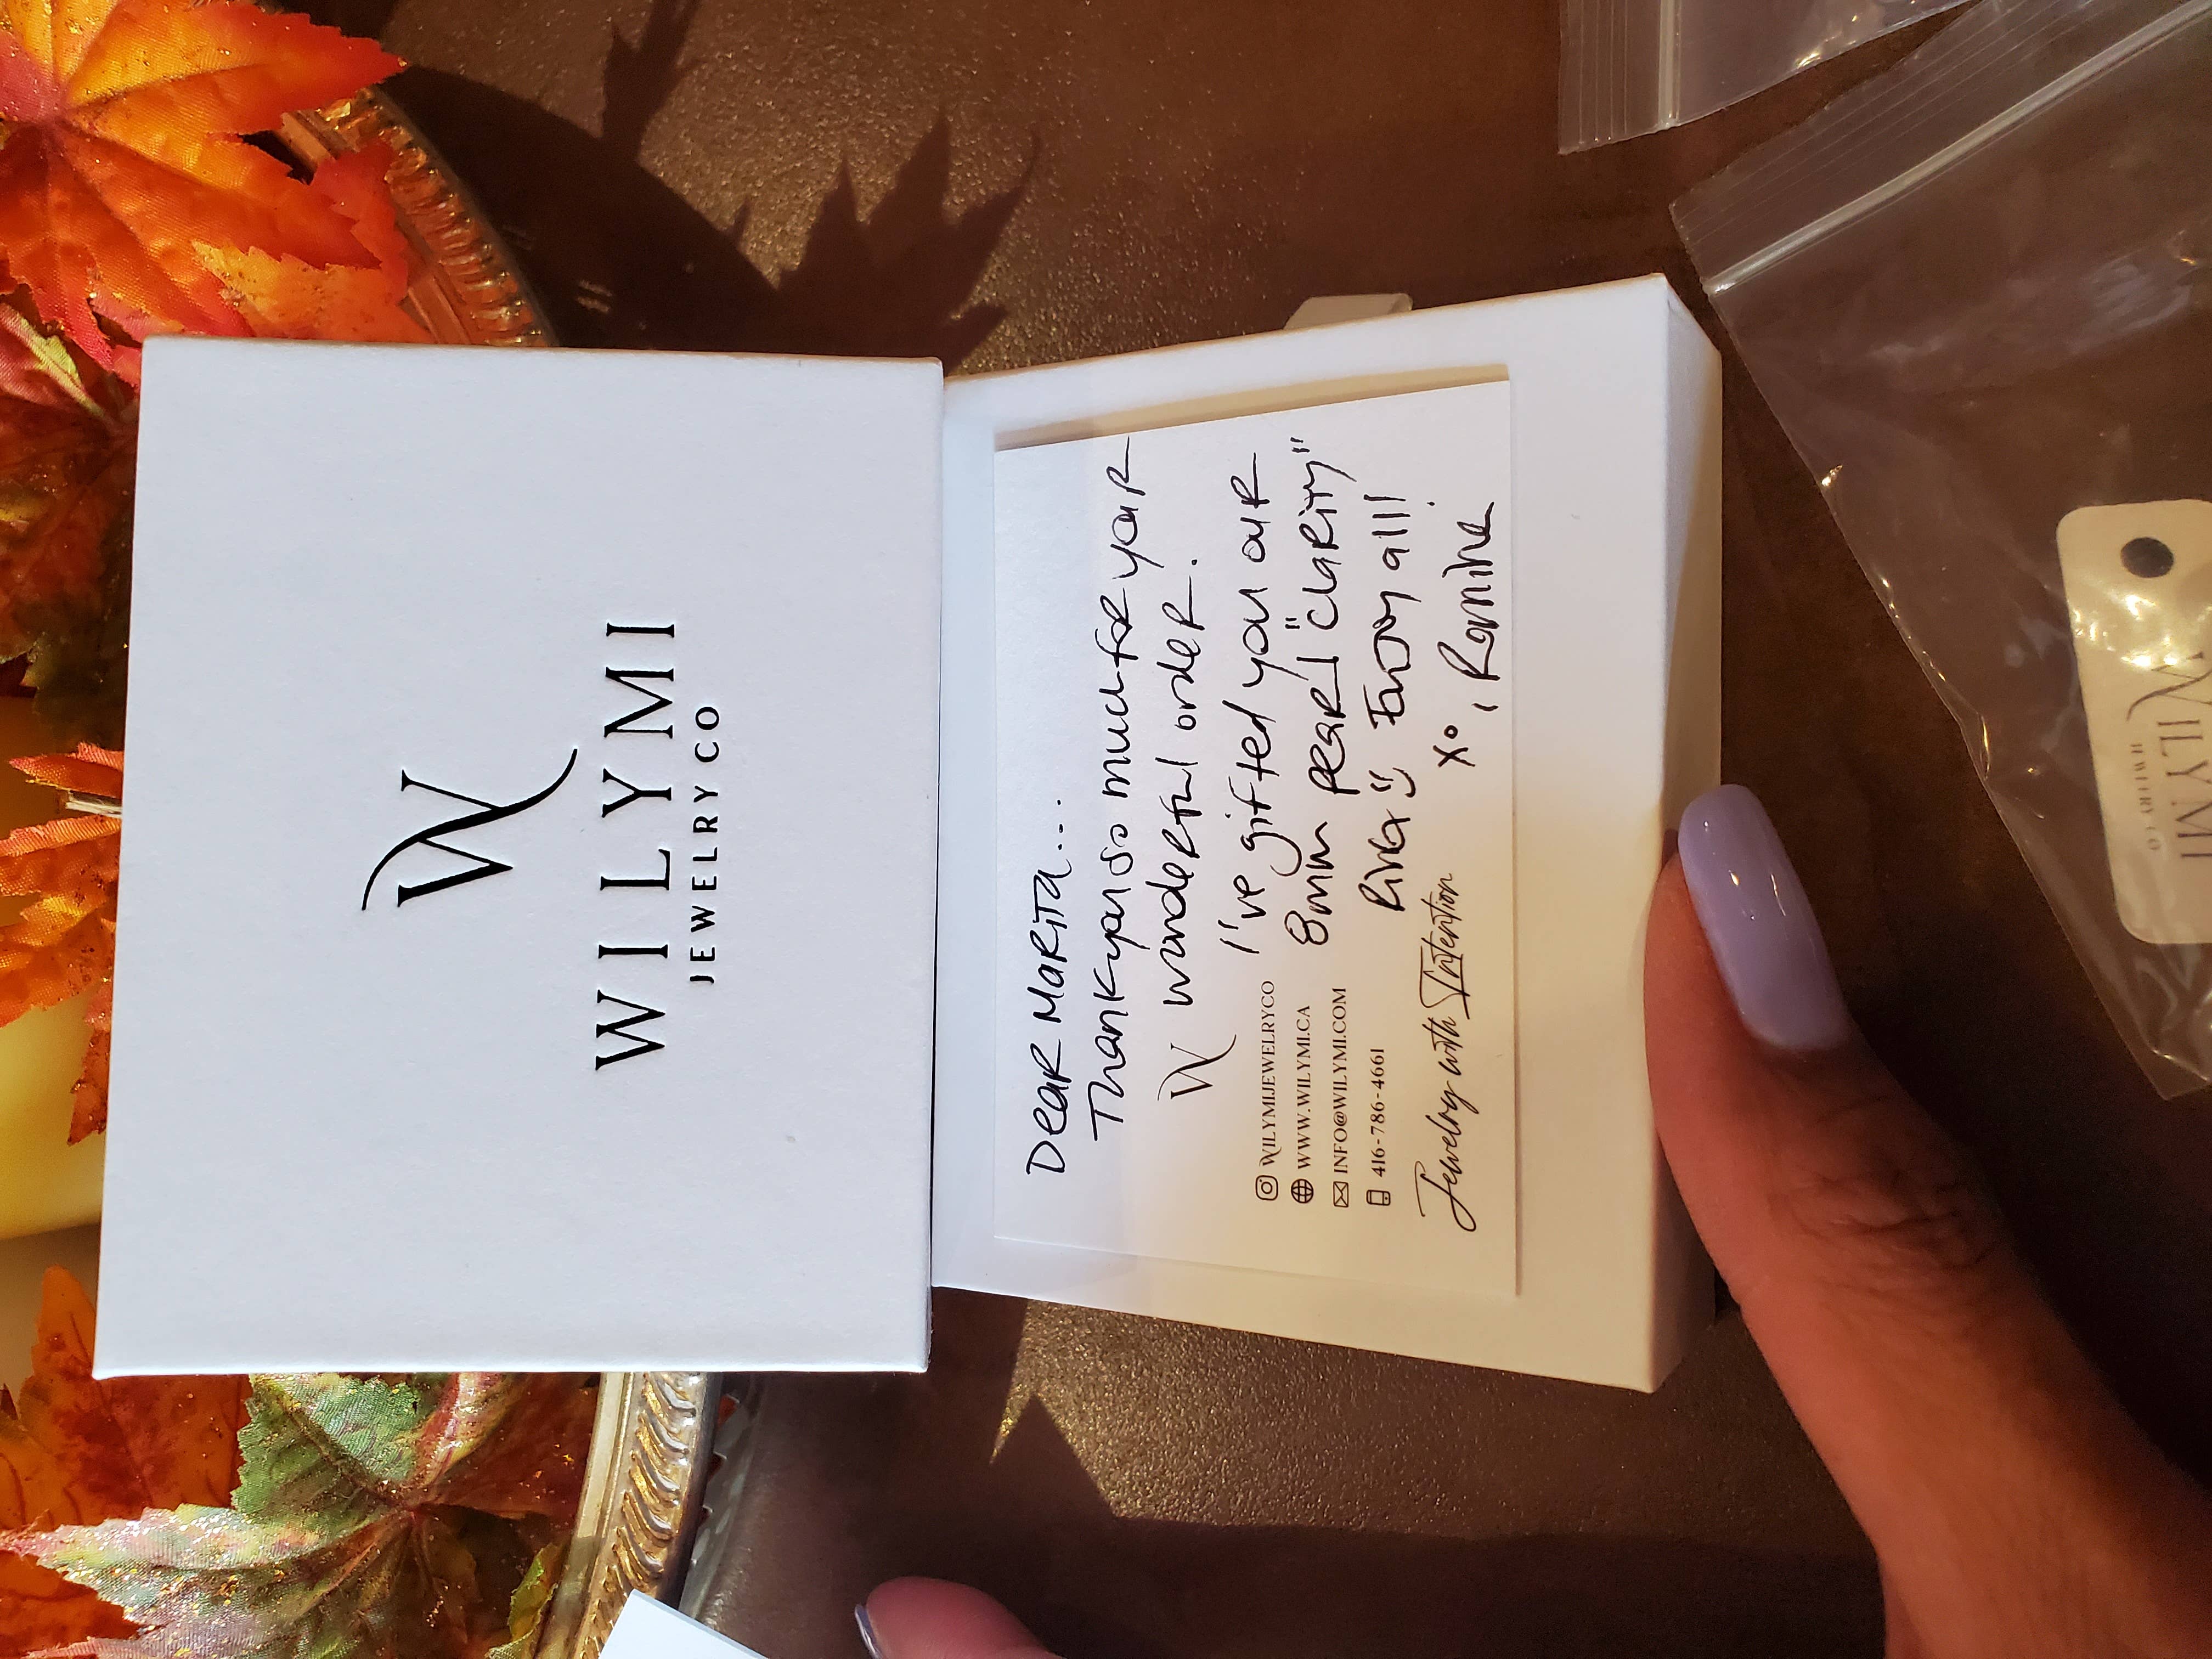 W
WILYMI
JEWELRY CO
Dear Marita...
Thank you so much for your
wonderful order.
I've gifted you our
8mm pearl "Clarity"
Riva Enjoy all!
xo, Romina
W
WILYMIJEWELRYCO
WWW.WILYMI.CA
INFO@WILYMI.COM
416-786-4661
Jewelry with Intention
WILYMI
JEWELRY CO